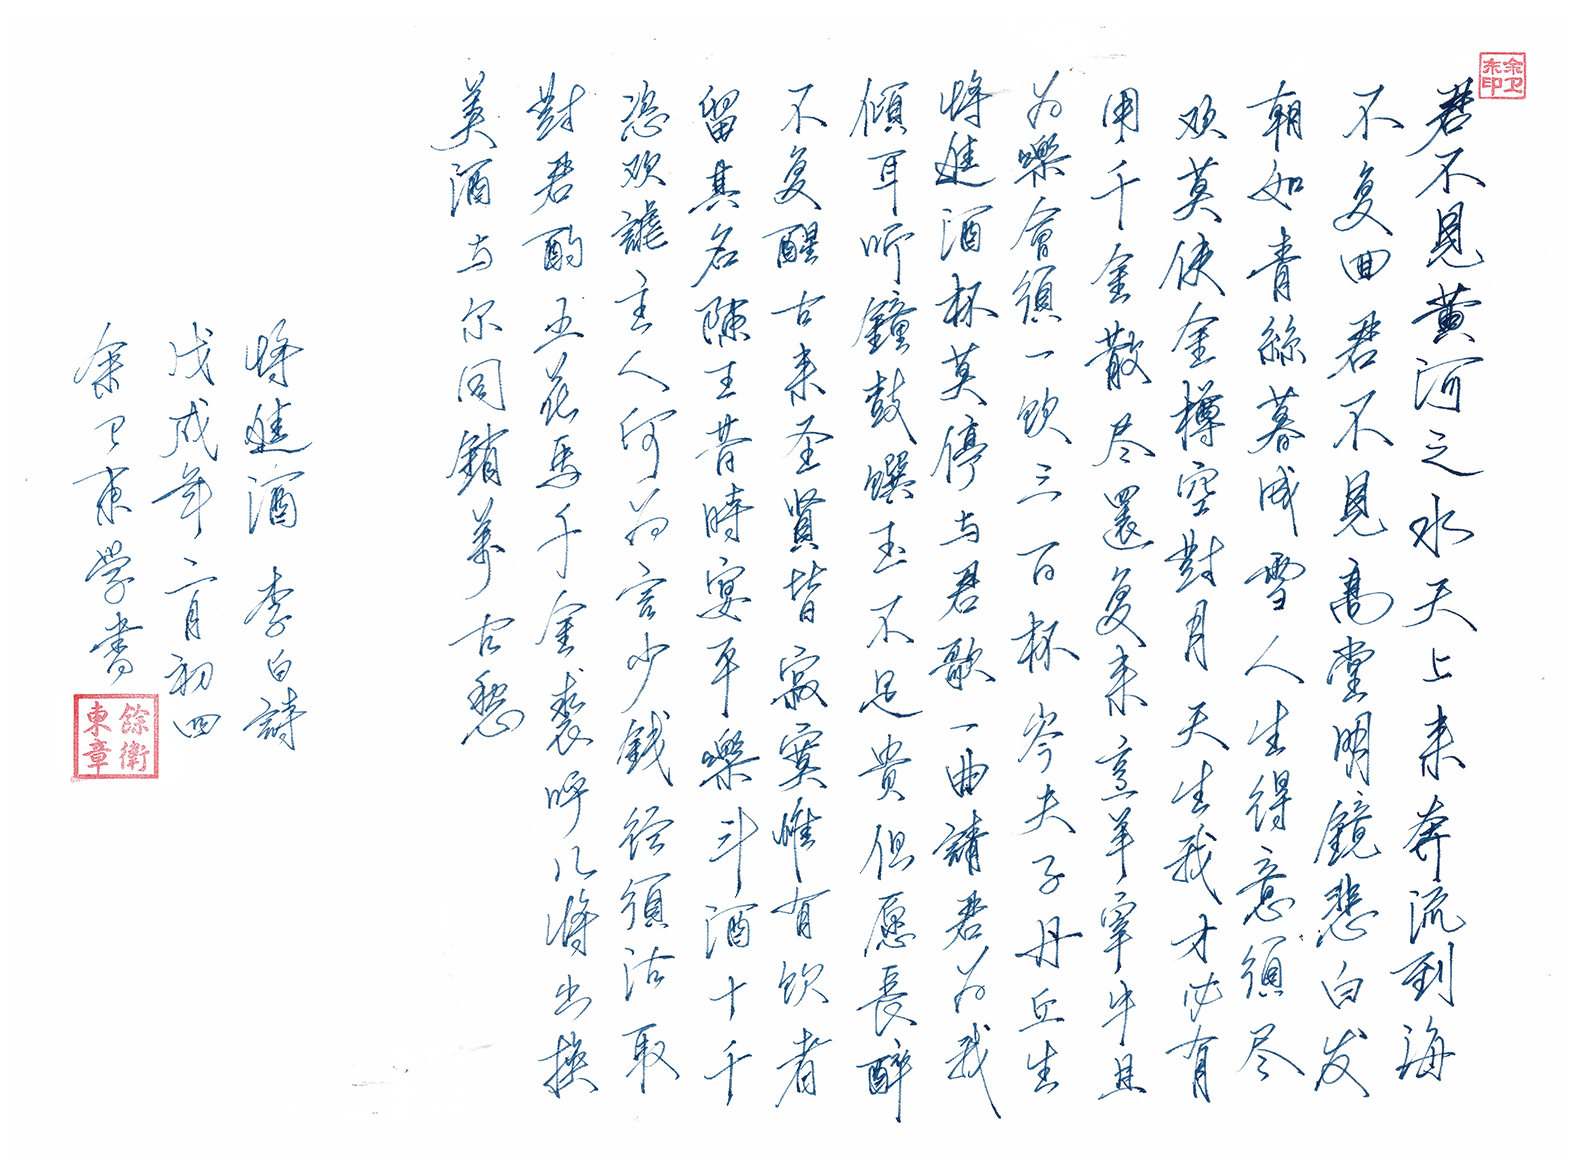 君不見黄河之水天上来奔流到海
不复回君不見高堂明鏡悲白发
朝如青絲暮成雪人生得意須尽
欢莫使金樽空對月天生我才必有
用千金散尽還复来烹羊宰牛且
为樂會須一飲三百杯岑夫子丹丘生
将進酒杯莫停与君歌一曲請君为我
傾耳听鐘鼓饌玉不足贵但愿長醉
不复醒古来圣賢皆寂寞惟有飲者
留其名陳王昔時宴平樂斗酒十千
恣欢謔主人何为言少钱径須沽取
對君酌五花馬千金裘呼儿將出换
美酒与尔同銷萬古愁
将進酒 李白詩
戊戌年二月初四
余卫東学書
余卫东印
餘衛東章